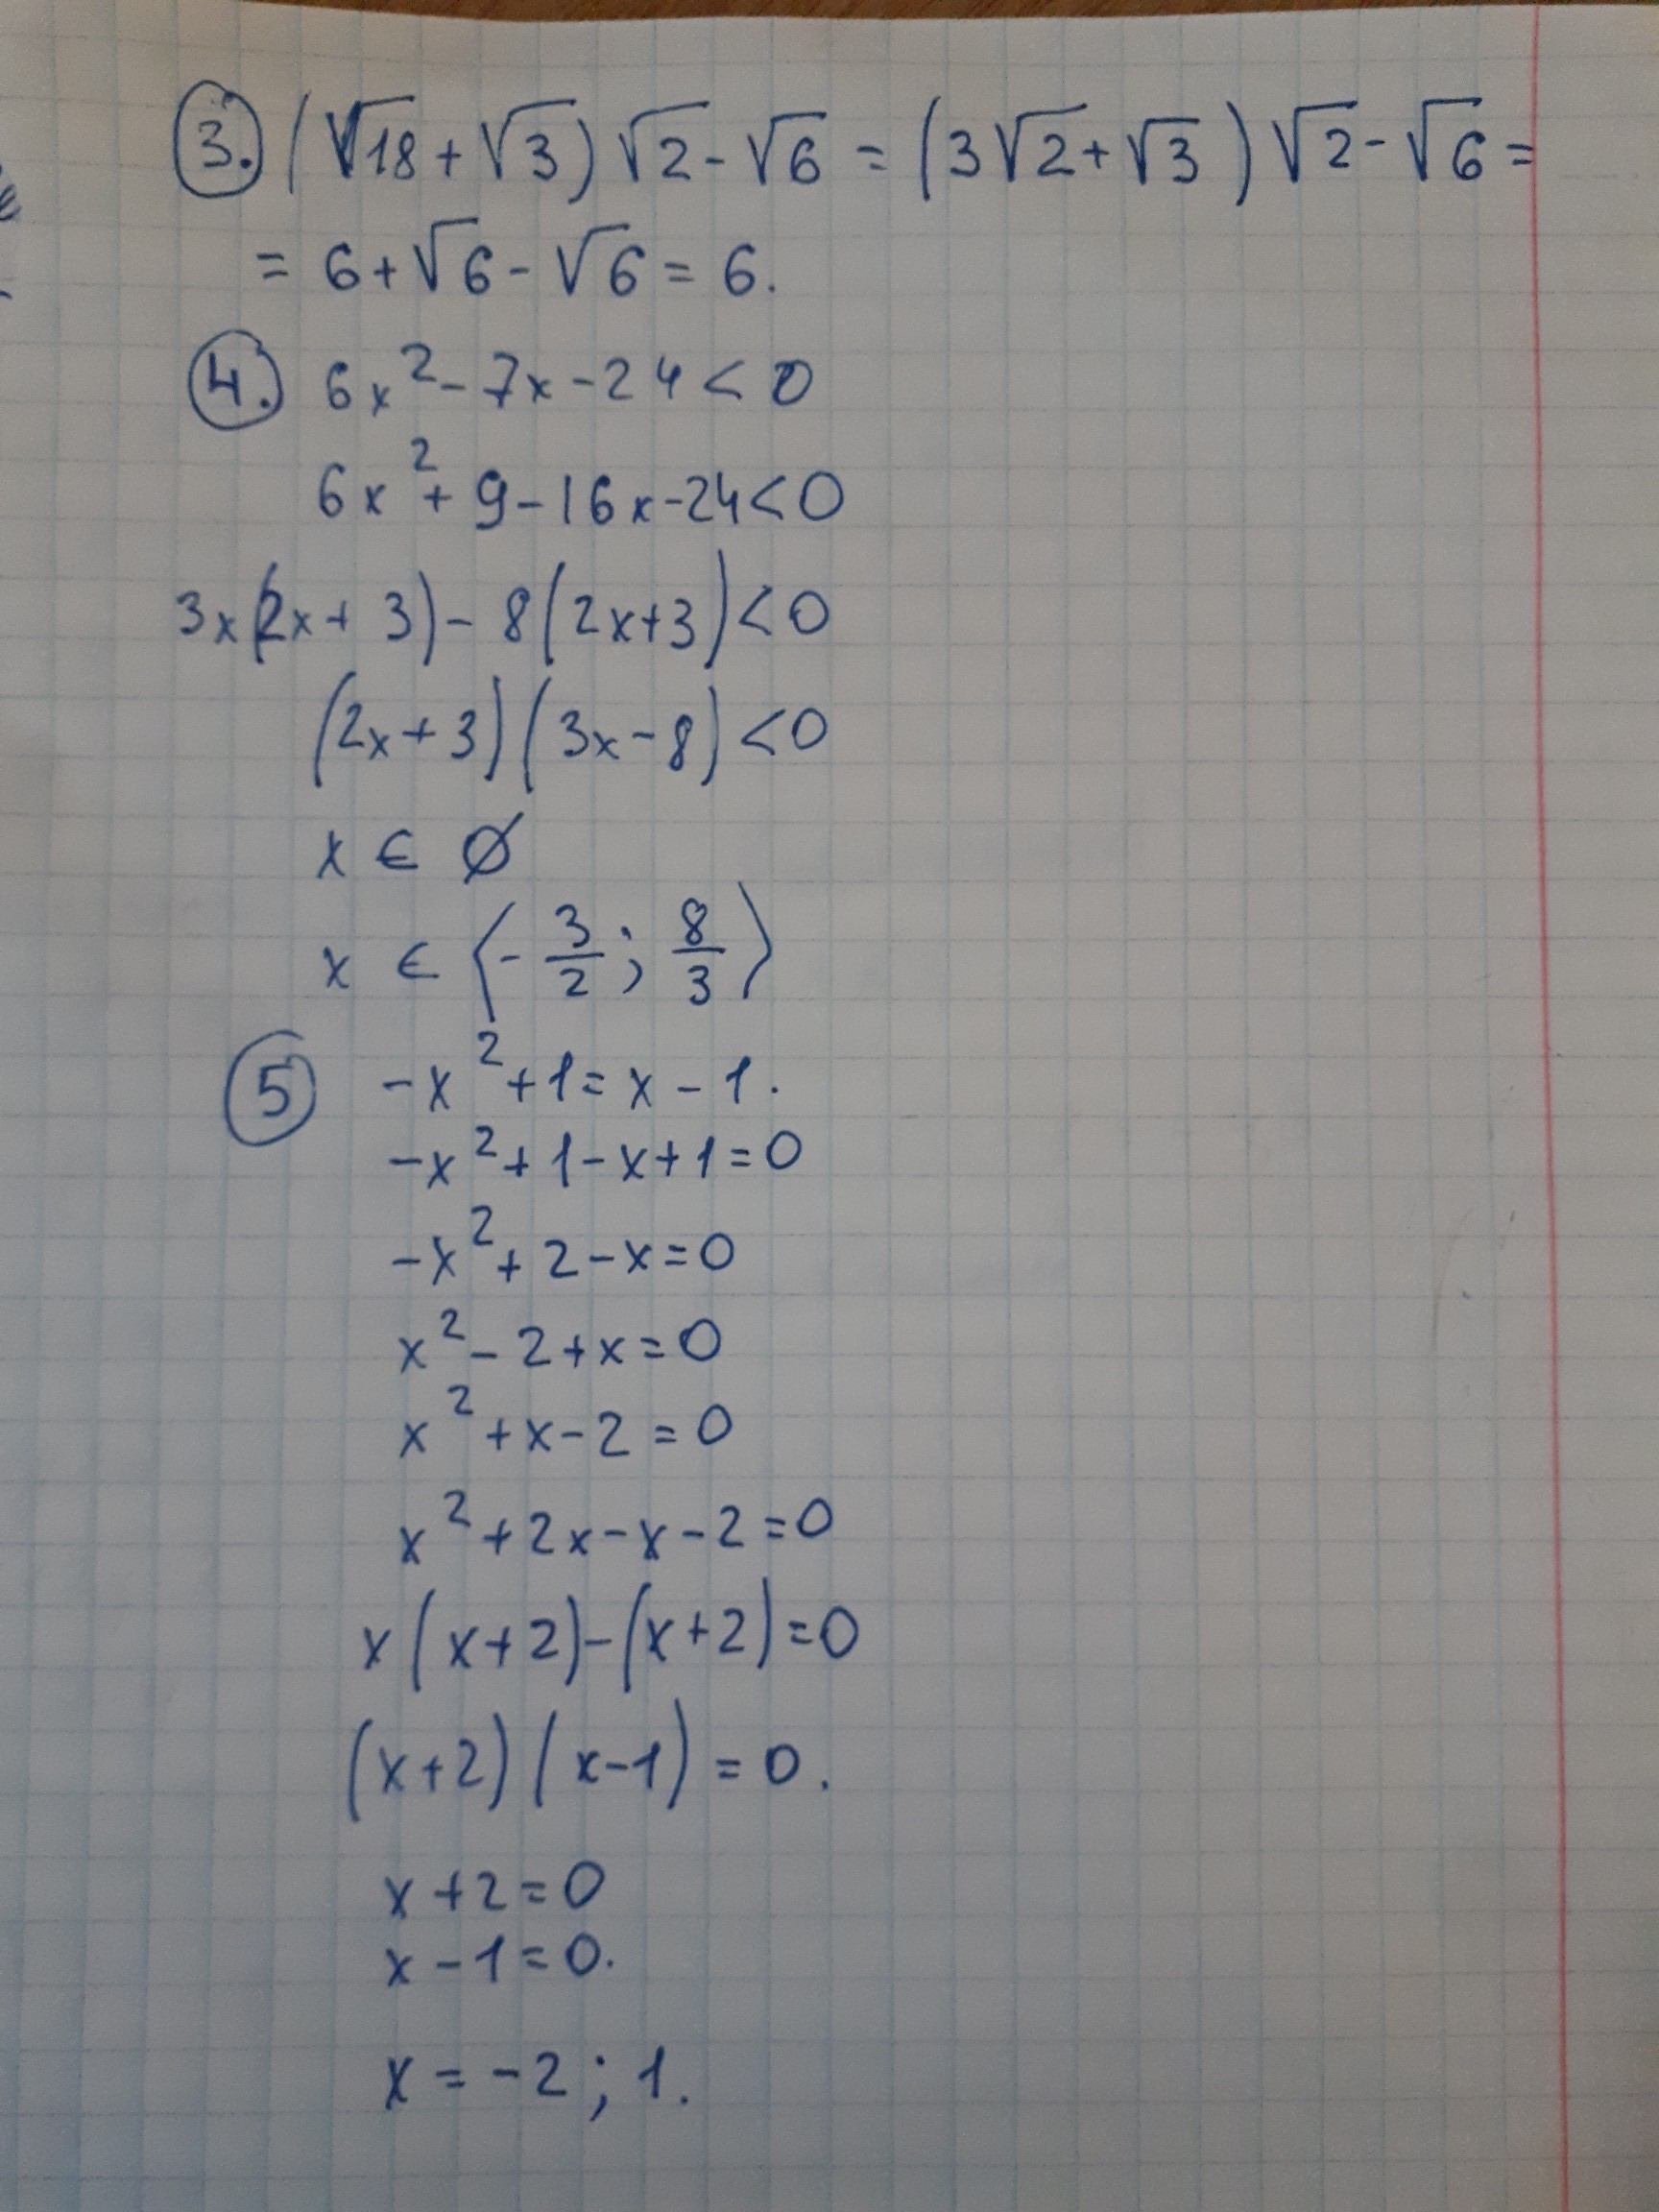 3. (√18 + √3) √2 - √6 = (3√2 + √3) √2 - √6 =
= 6 + √6 - √6 = 6.
4. 6x² - 7x - 24 < 0
6x² + 9 - 16x - 24 < 0
3x(2x + 3) - 8(2x + 3) < 0
(2x + 3)(3x - 8) < 0
x ∈ Ø
x ∈ ⟨-3/2; 8/3⟩
5 -x² + 1 = x - 1.
-x² + 1 - x + 1 = 0
-x² + 2 - x = 0
x² - 2 + x = 0
x² + x - 2 = 0
x² + 2x - x - 2 = 0
x(x + 2) - (x + 2) = 0
(x + 2)(x - 1) = 0.
x + 2 = 0
x - 1 = 0.
x = -2; 1.